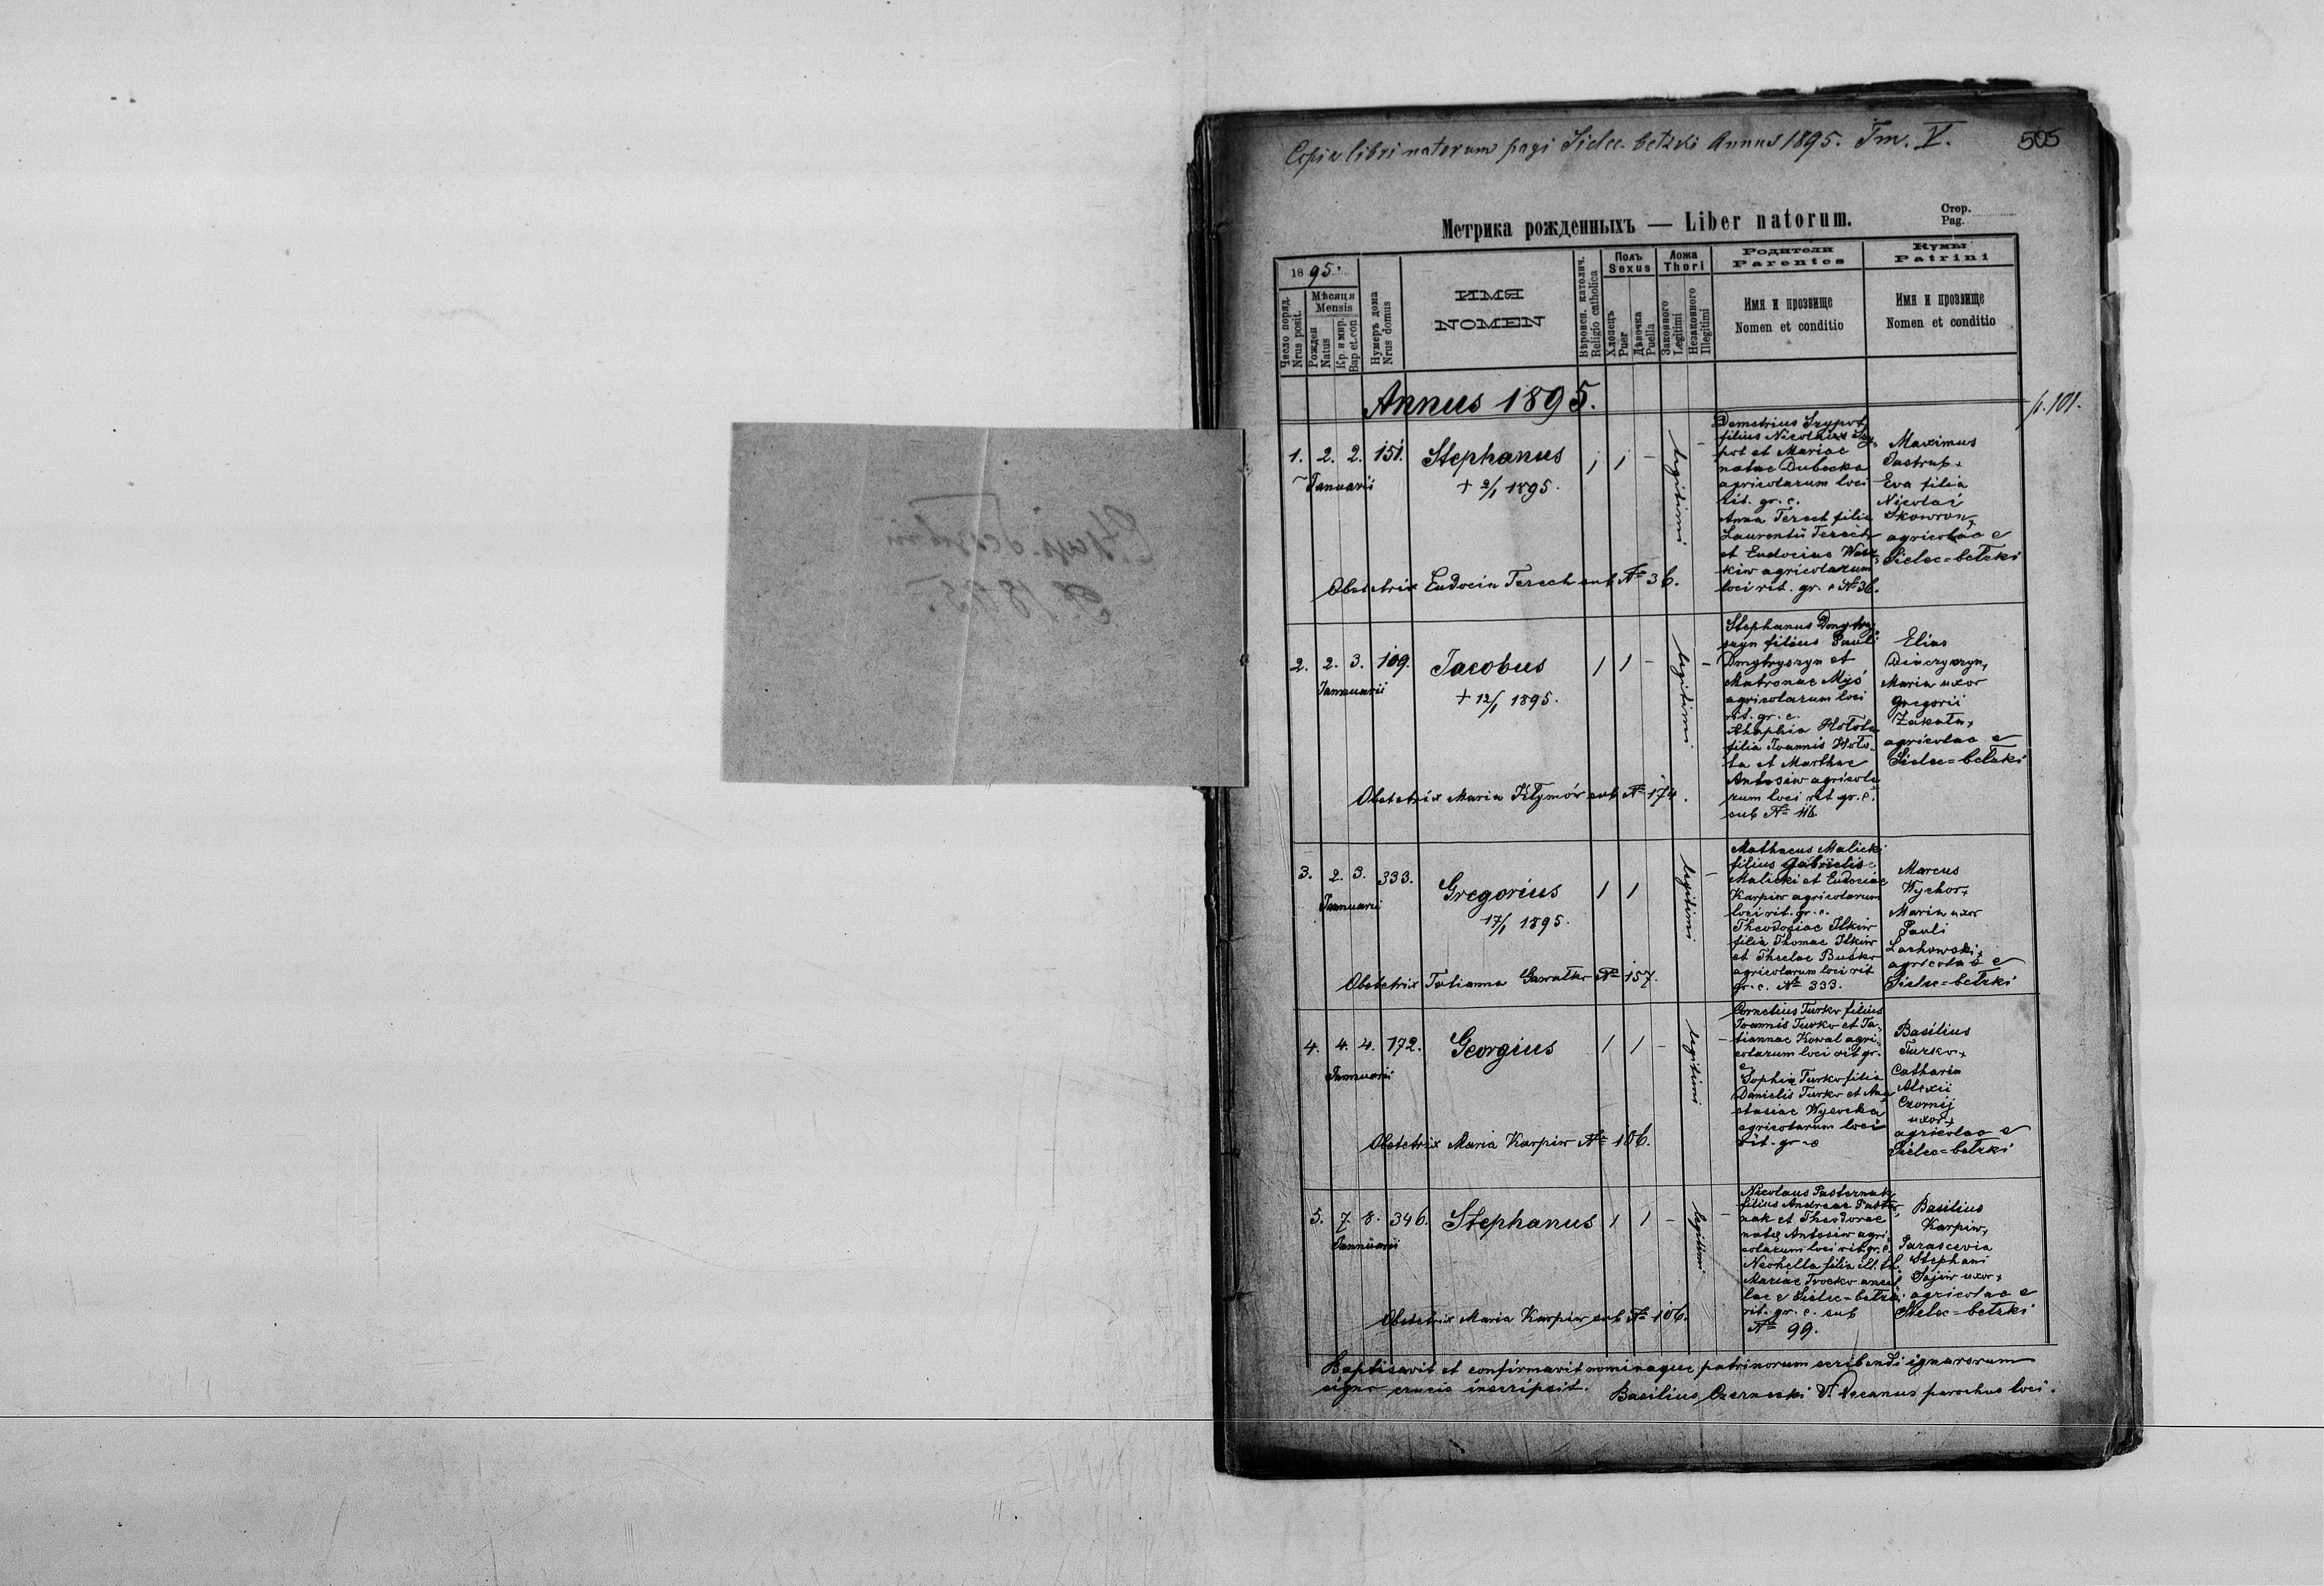 Copia libri natorum pagi Sielec-bełzki Annus 1895. Tm. V.
505
Метрика рожденныхъ — Liber natorum.
Стор.
Pag.
1895.
Число поряд.
Nrus posit.
Мѣсяця
Mensis
Рожден
Natus
Кр. и мир.
Bap et.con
Нумеръ дома
Nrus domus
ИМЯ
NOMEN
Вѣроисп. католич.
Religio catholica
Полъ
Sexus
Хлопецъ
Puer
Дѣвочка
Puella
Ложа
Thori
Законного
Legitimi
Незаконного
Illegitimi
Родители
Parentes
Имя и прозвище
Nomen et conditio
Кумы
Patrini
Имя и прозвище
Nomen et conditio
Annus 1895.
p. 101.
1. 2. 2. 151. Stephanus 1 1 -
Januarii
+ 2/1 1895.
legitimi
Demetrius Szypot,
filius Nicolaus Szy-
pot et Mariae
natae Dubecka
agricolarum loci
rit. gr. c.
Anna Terech filia
Laurentii Terech
et Eudocias Wasz-
kiw agricolarum
loci rit. gr. c № 36.
Maximus
Jastrub +
Eva filia
Nicolai
Skowron +
agricolae e
Sielec=bełzki
Obstetrix Eudocia Terech sub № 36.
2. 2. 3. 109. Jacobus 1 1 -
Januarii
+ 12/1 1895.
legitimi
Stephanus Dmytry-
szyn filius Pauli
Dmytryszyn et
Matronae Myś
agricolarum loci
rit. gr. c.
Ahaphia Hołota
filia Joannis Hoło-
ta et Marthae
Antosiw agricola
rum loci rit gr. c.
sub № 116
Elias
Diaczyszyn +
Maria uxor
Gregorii
Zakała +
agricolae e
Sielec=bełzki
Obstetrix Maria Kłymów sub № 174.
3. 2. 3. 333. Gregorius 1 1
Januarii
17/1 1895.
legitimi
Mathaeus Malicki
filius Gabrielis
Malicki et Eudociae
Karpiw agricolarum
loci rit. gr. c.
Theodosiae Ilkiw
filia Thomae Ilkiw
et Theclae Buśko
agricolarum loci rit
gr. c. № 333.
Marcus
Wychor +
Maria uxor
Pauli
Lachowski +
agricolae e
Sielec=bełzki
Obstetrix Tatianna Gawałko № 157.
4. 4. 4. 172. Georgius 1 1 -
Januarii
legitimi
Cornelius Turko filius
Joannis Turko et Ta-
tiannae Kowal agri-
colarum loci rit gr.
c
Sophia Turko filia
Danielis Turko et Ana
stasiae Wysocka
agricolarum loci
rit. gr c
Basilius
Turko +
Catharina
Alexii
Czornij
uxor +
agricolae e
Sielec=bełzki
Obstetrix Maria Karpiw № 106.
5. 7. 8. 346. Stephanus 1 1 -
Januarii
legitimi
Nicolaus Pasternak
filius Andreae Paster-
nak et Theodorae
natae Antosiw agri-
colarum loci rit. gr. c.
filia
Mariae Trocko ancil
lae e Sielec=bełzki
rit. gr. c. sub
№ 99.
Basilius
Karpiw +
Parascevia
Stephani
uxor +
agricolae e
Sielec=bełzki
Obstetrix Maria Karpiw sub № 106.
Baptisavit et confirmavit nominaque patrinorum scribendi ignarorum
signo crucis inscripsit. Basilius Czernecki V. Decanus parochus loci.